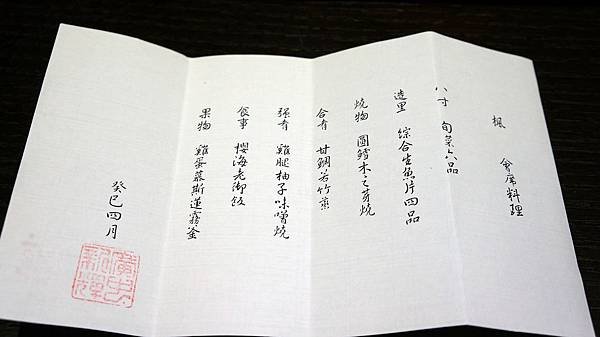 楓 會席料理
八寸 旬菜六品
造里 綜合生魚片四品
燒物 圓鱈木之芽燒
合肴 甘鯛若竹蒸
強肴 雞腿柚子味噌燒
食事 櫻海老御飯
果物 雞蛋慕斯蓮霧釜
癸巳四月